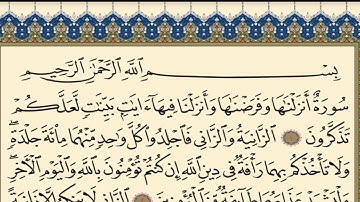 بِسْمِ ٱللَّهِ ٱلرَّحْمَٰنِ ٱلرَّحِيمِ
سُورَةٌ أَنزَلْنَٰهَا وَفَرَضْنَٰهَا وَأَنزَلْنَا فِيهَآ ءَايَٰتٍۭ بَيِّنَٰتٍ لَّعَلَّكُمْ
تَذَكَّرُونَ ٱلزَّانِيَةُ وَٱلزَّانِى فَٱجْلِدُوا۟ كُلَّ وَٰحِدٍ مِّنْهُمَا مِا۟ئَةَ جَلْدَةٍ ۖ
وَلَا تَأْخُذْكُم بِهِمَا رَأْفَةٌ فِى دِينِ ٱللَّهِ إِن كُنتُمْ تُؤْمِنُونَ بِٱللَّهِ وَٱلْيَوْمِ ٱلْءَاخِرِ ۖ